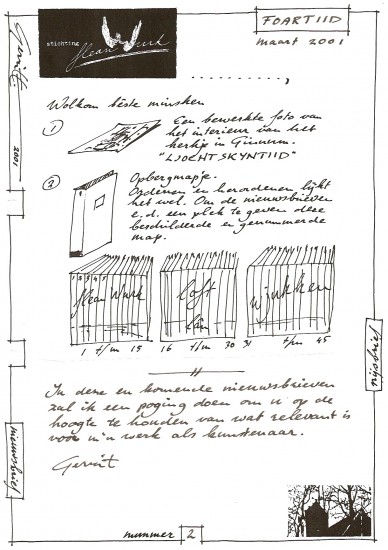 stichting
flean Wurk
FOARTIID
maart 2001
Gerrit
2001
Wolkom bêste minsken
1 Een bewerkte foto van
het interieur van het
kerkje in Ginnum.
"LJOCHTSKYNTIID"
2 Opbergmapje.
Ordenen en herordenen lijkt
het wel. Om de nieuwsbrieven
e.d. een plek te geven deze
beschilderde en genummerde
map.
1 2 3 4 5
flean Wurk
loft
lân
wjukken
1 t/m 15 16 t/m 30 31 t/m 45
In deze en komende nieuwsbrieven
zal ik een poging doen om u op de
hoogte te houden van wat relevant is
voor m'n werk als kunstenaar.
Gerrit
nijsbrief
nieuwsbrief
nummer 2